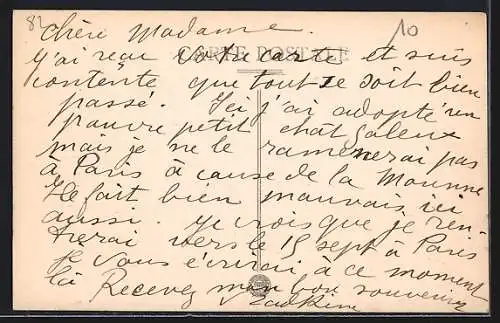 82
10
CARTE POSTALE
Chère Madame.
J'ai reçu votre carte et suis
contente que tout se soit bien
passé. Ici j'ai adopté un
pauvre petit chat galeux
mais je ne le ramenerai pas
à Paris à cause de la Moune
Il fait bien mauvais ici
aussi. Je crois que je ren-
trerai vers le 15 sept à Paris
Je vous écrirai à ce moment
là Recevez mon bon souvenir